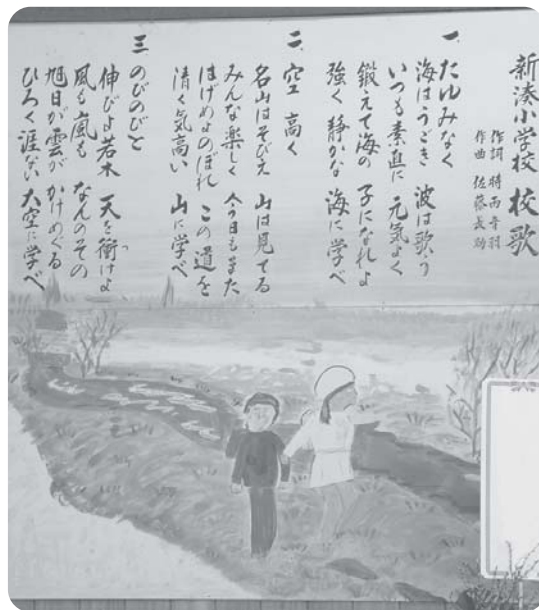 新湊小学校 校歌
作詞 時雨音羽
作曲 佐藤長助
一 たゆみなく
海はうごき 波は歌う
いつも素直に 元気よく
鍛えて海の 子になれよ
強く 静かな 海に学べ
二 空 高く
名山はそびえ 山は見てる
みんな楽しく 今日もまた
はげめよのぼれ この道を
清く気高い 山に学べ
三 のびのびと
伸びよ若木 天を衝けよ
つ
風も嵐も なんのその
旭日が雲が かけめぐる
ひろく涯ない 大空に学べ